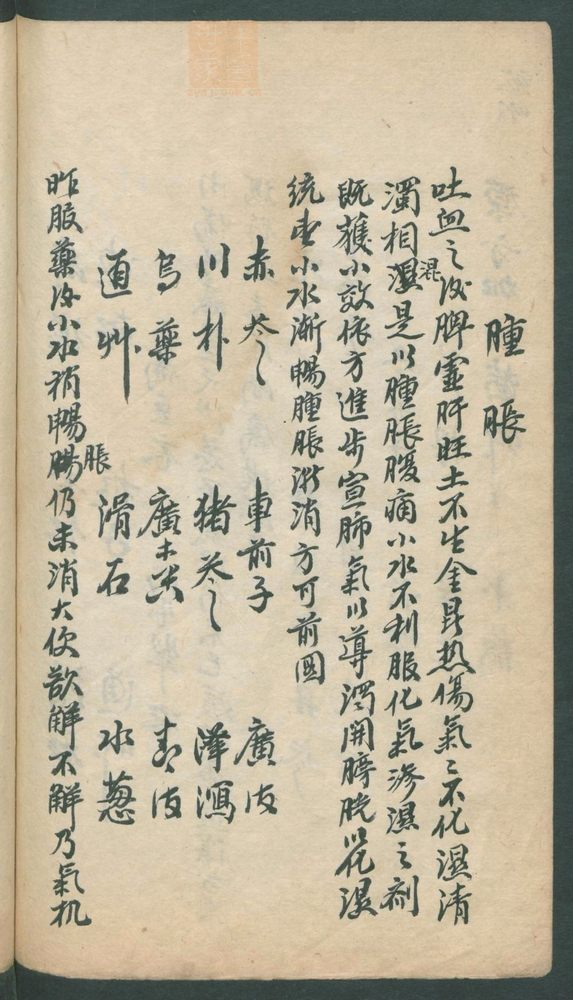 腫脹
吐血之後脾虛肝旺土不生金是热傷氣〻不化濕清
濁相混是以腫脹腹痛小水不利服化氣滲濕之剤
既獲小效依方進步宣肺氣以導濁開膀胱以化濕
統史小水漸暢腫脹漸消方可前圖
赤苓 車前子 廣皮
川朴 猪苓 澤瀉
烏藥 廣木香 青皮
通艸 滑石 水葱
昨服藥後小水稍暢腸脹仍未消大便欲解不解乃氣机